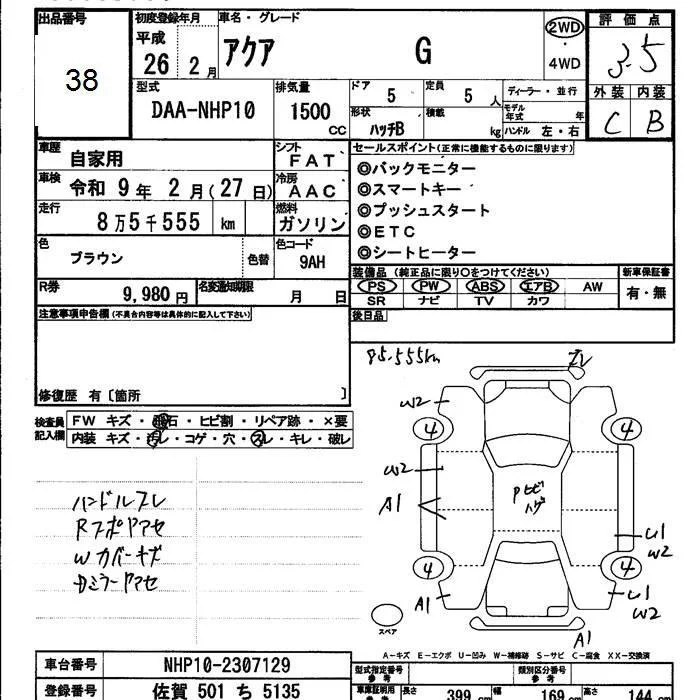 出品番号
38
初度登録年月
平成
26 2月
車名・グレード
アクア G
2WD
・
4WD
評価点
3.5
外装 内装
C B
型式
DAA-NHP10
排気量
1500
CC
ドア 5
定員 5 人
形状 ハッチB
積載 kg
ディーラー・並行
モデル年式 年
ハンドル 左・右
車歴 自家用
シフト FAT
車検 令和 9年 2月(27日)
冷房 AAC
走行 8万5千555 km
燃料 ガソリン
色 ブラウン
色替
色コード 9AH
R券 9,980円
名変通知期限 月 日
セールスポイント(正常に機能するものに限ります)
◎バックモニター
◎スマートキー
◎プッシュスタート
◎ETC
◎シートヒーター
装備品(純正品に限り○をつけてください)
PS PW ABS エアB AW
SR ナビ TV カワ
新車保証書
有・無
後日品
注意事項申告欄(不具合内容等は具体的に記入して下さい)
修復歴 有〔箇所 〕
検査員記入欄
FW キズ・飛石・ヒビ割・リペア跡・×要
内装 キズ・汚レ・コゲ・穴・スレ・キレ・破レ
ハンドルスレ
Rスポヤアセ
Wカバーキズ
Dミラーヤアセ
85.555km
W2
4
4
W2
A1
Pヒビ
ハゲ
U1
W2
4
4
A1
U1
W2
A1
スペア
A-キズ E-エクボ U-凹み W-補修跡 S-サビ C-腐食 XX-交換済
車台番号 NHP10-2307129
型式指定番号
参考
類別区分番号
参考
登録番号 佐賀 501 ち 5135
車庫証明用
参考
長さ 399 幅 169 高さ 144